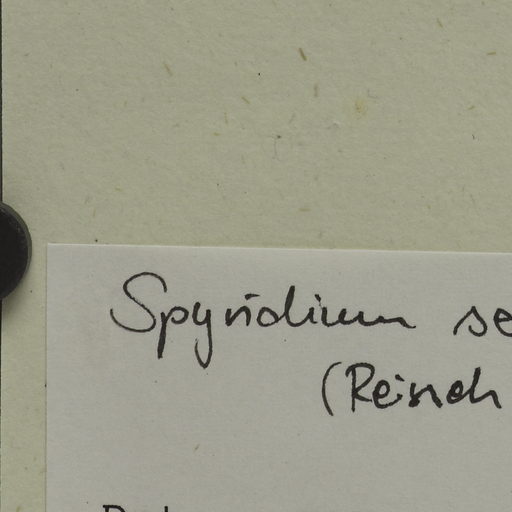 Spyridium se
(Reissek